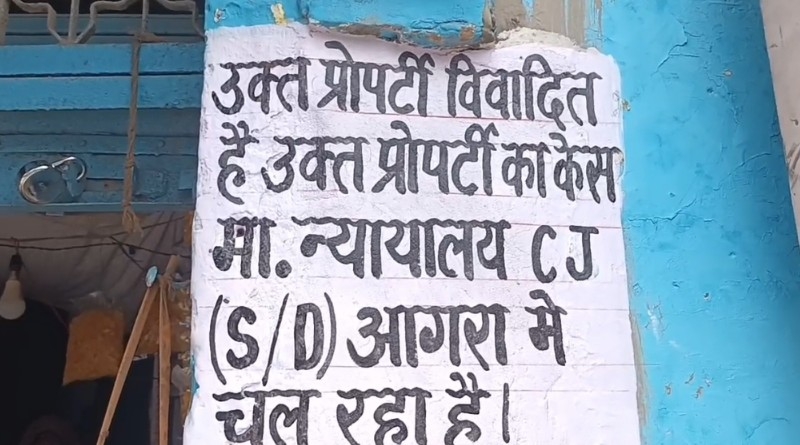 उक्त प्रोपर्टी विवादित
है उक्त प्रोपर्टी का केस
मा. न्यायालय C J
(S/D) आगरा मे
चल रहा है।